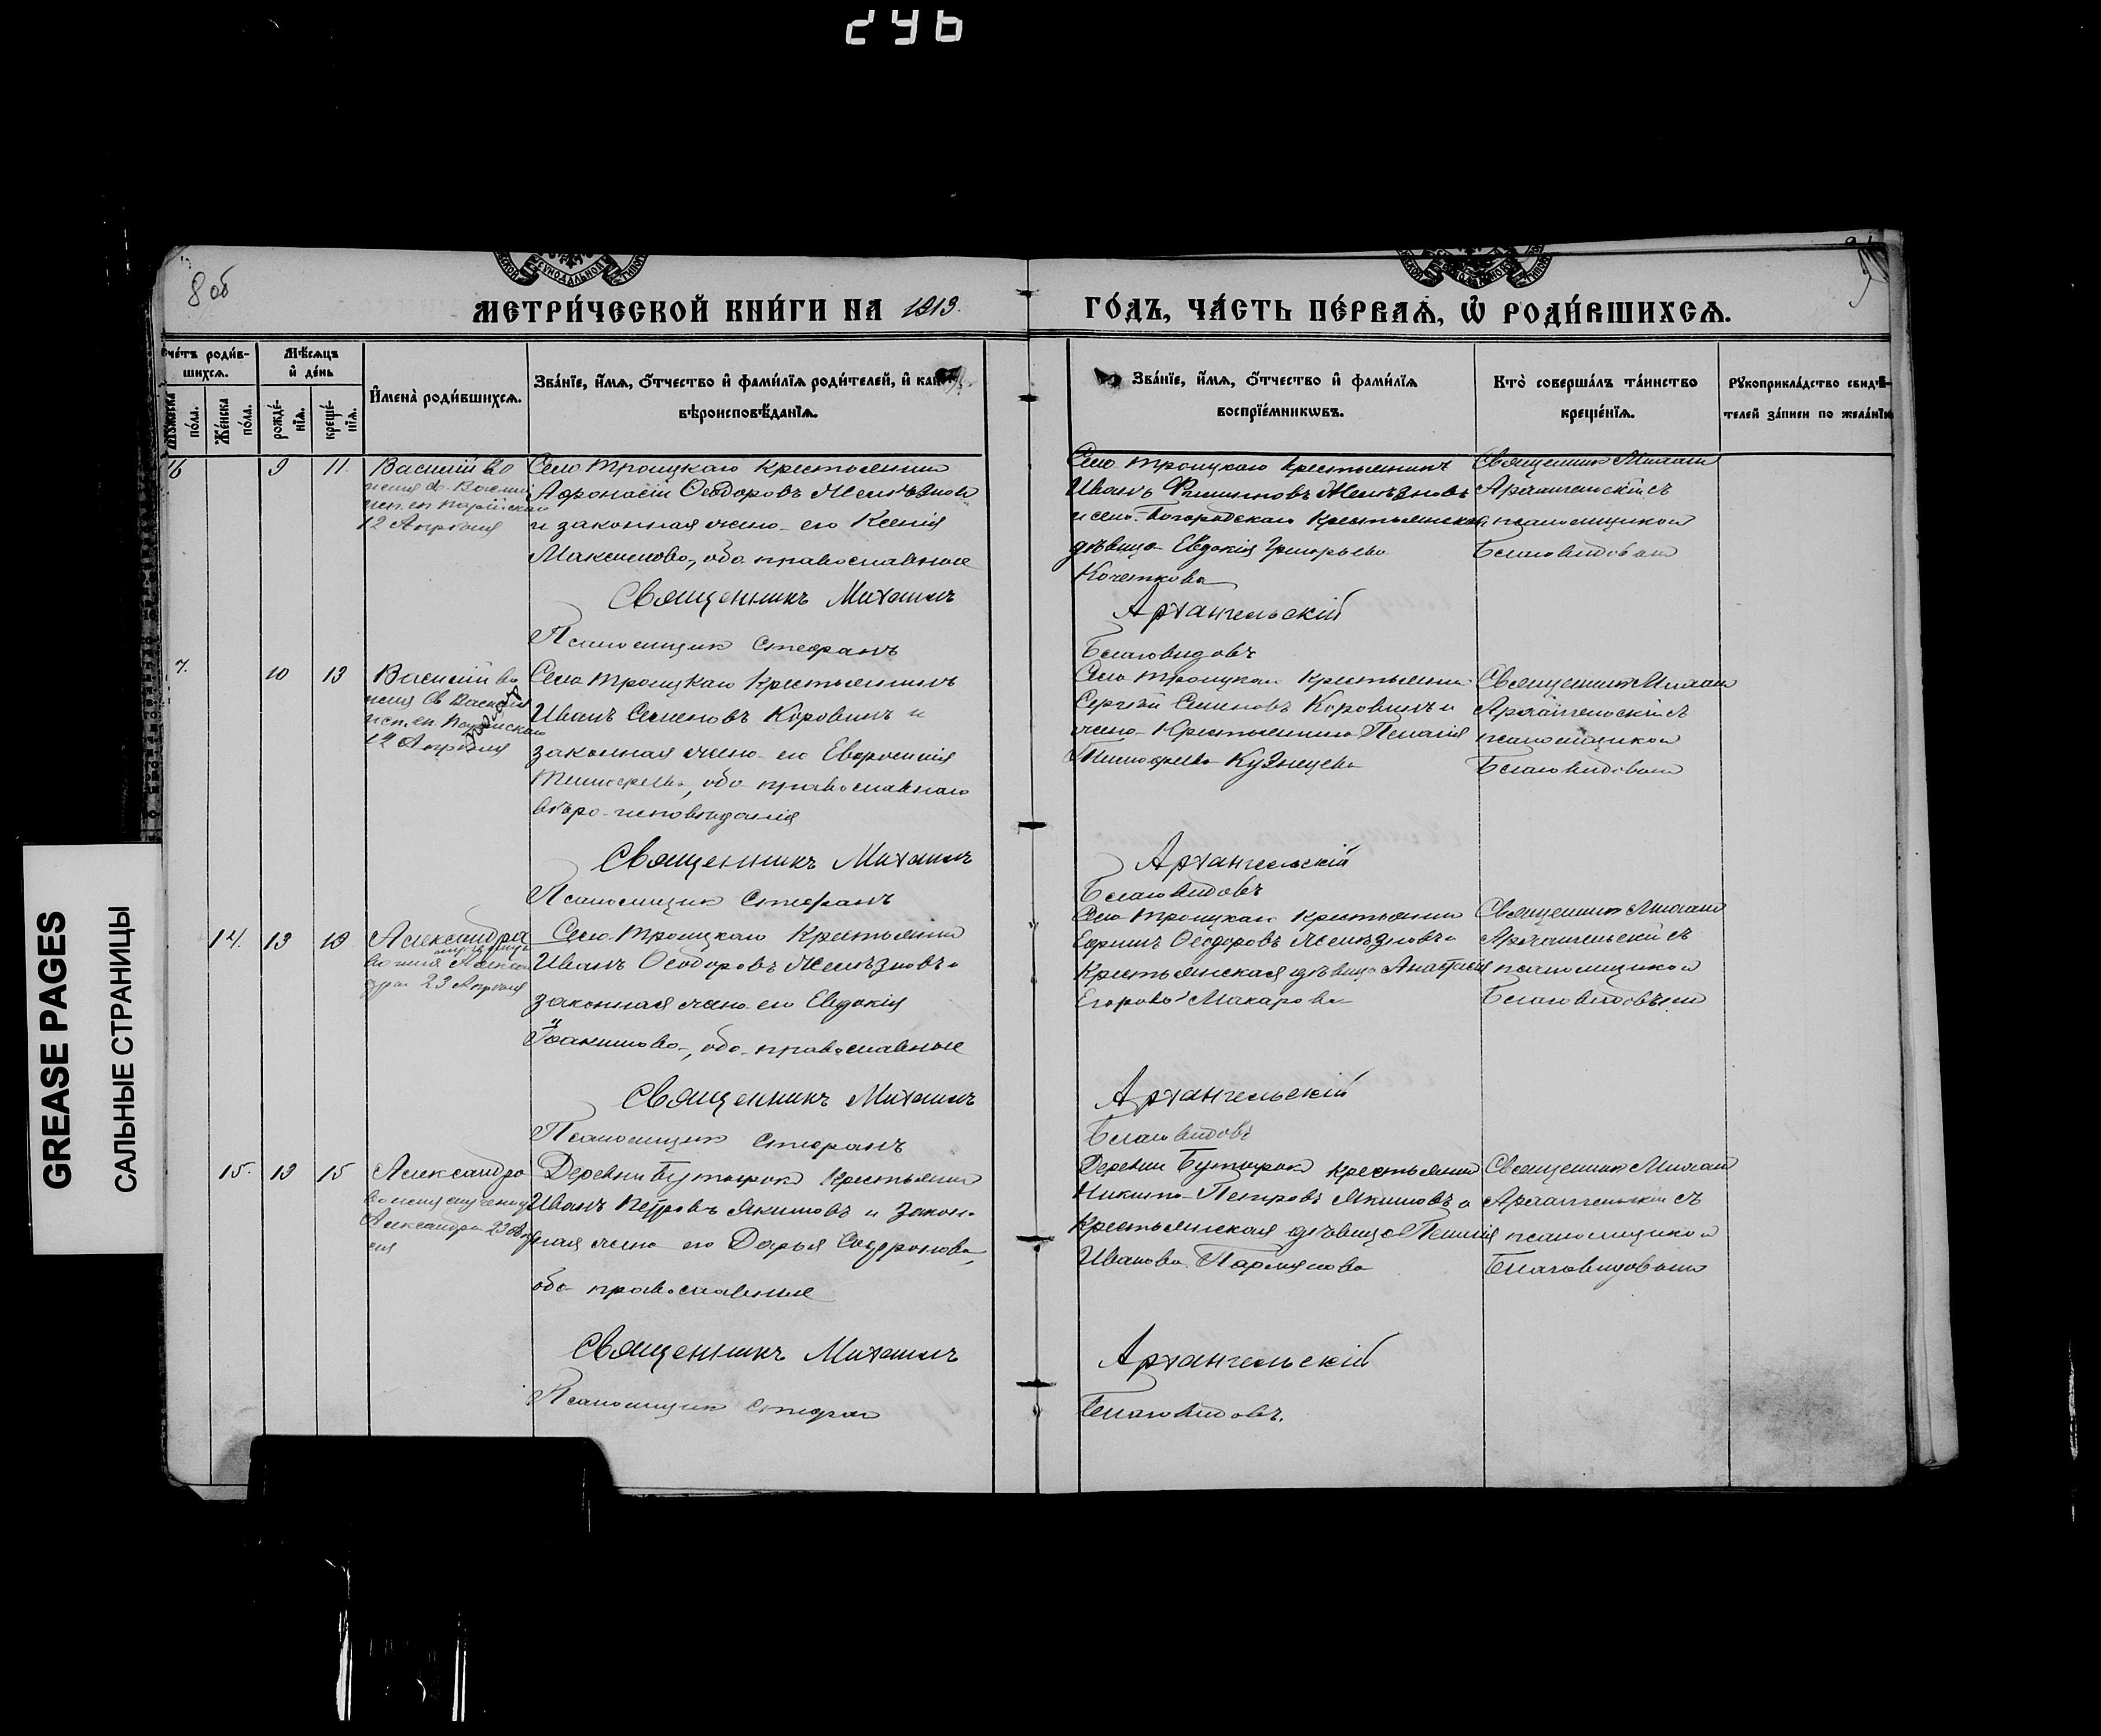 296
8 об
МЕТРИ́ЧЕСКОЙ КНИ́ГИ НА 1913. ГО́ДЪ, ЧА́СТЬ ПЕ́РВАѦ, Ѡ҆ РОДИ́ВШИХСѦ.
Сче́тъ роди́в-
шихсѧ.
Мѣ́сѧцъ
и҆ де́нь
Мꙋ́жеска
по́ла.
Же́нска
по́ла.
рожде́-
нїѧ.
креще́-
нїѧ.
И҆мена̀ роди́вшихсѧ.
Зва́нїе, и҆́мѧ, ѻ҆́тчество и҆ фами́лїѧ роди́телей, и҆
вѣроисповѣ́данїѧ.
Зва́нїе, и҆́мѧ, ѻ҆́тчество и҆ фами́лїѧ
воспрїе́мникѡвъ.
Кто̀ соверша́лъ та́инство
креще́нїѧ.
Рꙋкоприкла́дство свидѣ́-
телей за́писи по жела́нїю
16 9 11. Василій во
12 Апрѣля
Село Троицкаго крестьянин
Афонасій Ѳеодоровъ Желѣзнов
и законная жена его Ксенія
Максимова, оба православные
Священникъ Михаилъ
Псаломщик Стефанъ
Село Троицкаго крестьянинъ
Иванъ Филиповъ Желѣзновъ
и село Богородскаго крестьянская
дѣвица Евдокія Григорьева
Кочеткова
Архангельскій
Благовидовъ
Священник Михаил
Архангельскій съ
псаломщиком
Благовидовым
7. 10 13 Василій во
имя Св Василія
исп. еп. Парійскаго
12 Апрѣля
Село Троицкаго Крестьянинъ
Иванъ Семеновъ Коровинъ и
законная жена его Евфросинія
Тимофеева, оба православнаго
вѣроисповѣданія
Священникъ Михаилъ
Псаломщик Стефанъ
Село Троицкаго крестьянин
Сергѣй Семеновъ Коровинъ и
жена крестьянина Пелагія
Тимофеева Кузнецова
Архангельскій
Благовидовъ
Священник Михаил
Архангельскій съ
псаломщиком
Благовидовым
14. 13 Александра
23 Апрѣля
Село Троицкаго Крестьянин
Иванъ Ѳеодоровъ Желѣзновъ и
законная жена его Евдокія
Іоакимова, оба православные
Священникъ Михаилъ
Псаломщик Стефанъ
Село Троицкаго крестьянин
Ефимъ Ѳеодоровъ Желѣзновъ и
Крестьянская дѣвица Анастасія
Егорова Макарова
Архангельскій
Благовидовъ
Священник Михаил
Архангельскій съ
псаломщиком
Благовидовым
15. 13 15 Александра
во имя мученицы
Александры 23 Апрѣ
ля
Деревни Бутырок Крестьянин
Иванъ Петровъ Якимовъ и закон-
ная жена его Дарья Софронова,
оба православные
Священникъ Михаилъ
Псаломщик Стефан
Деревни Бутырок крестьянин
Никита Петровъ Якимовъ и
Крестьянская дѣвица Пелагія
Иванова
Архангельскій
Благовидовъ.
Священник Михаил
Архангельскій съ
псаломщиком
Благовидовым
GREASE PAGES
САЛЬНЫЕ СТРАНИЦЫ